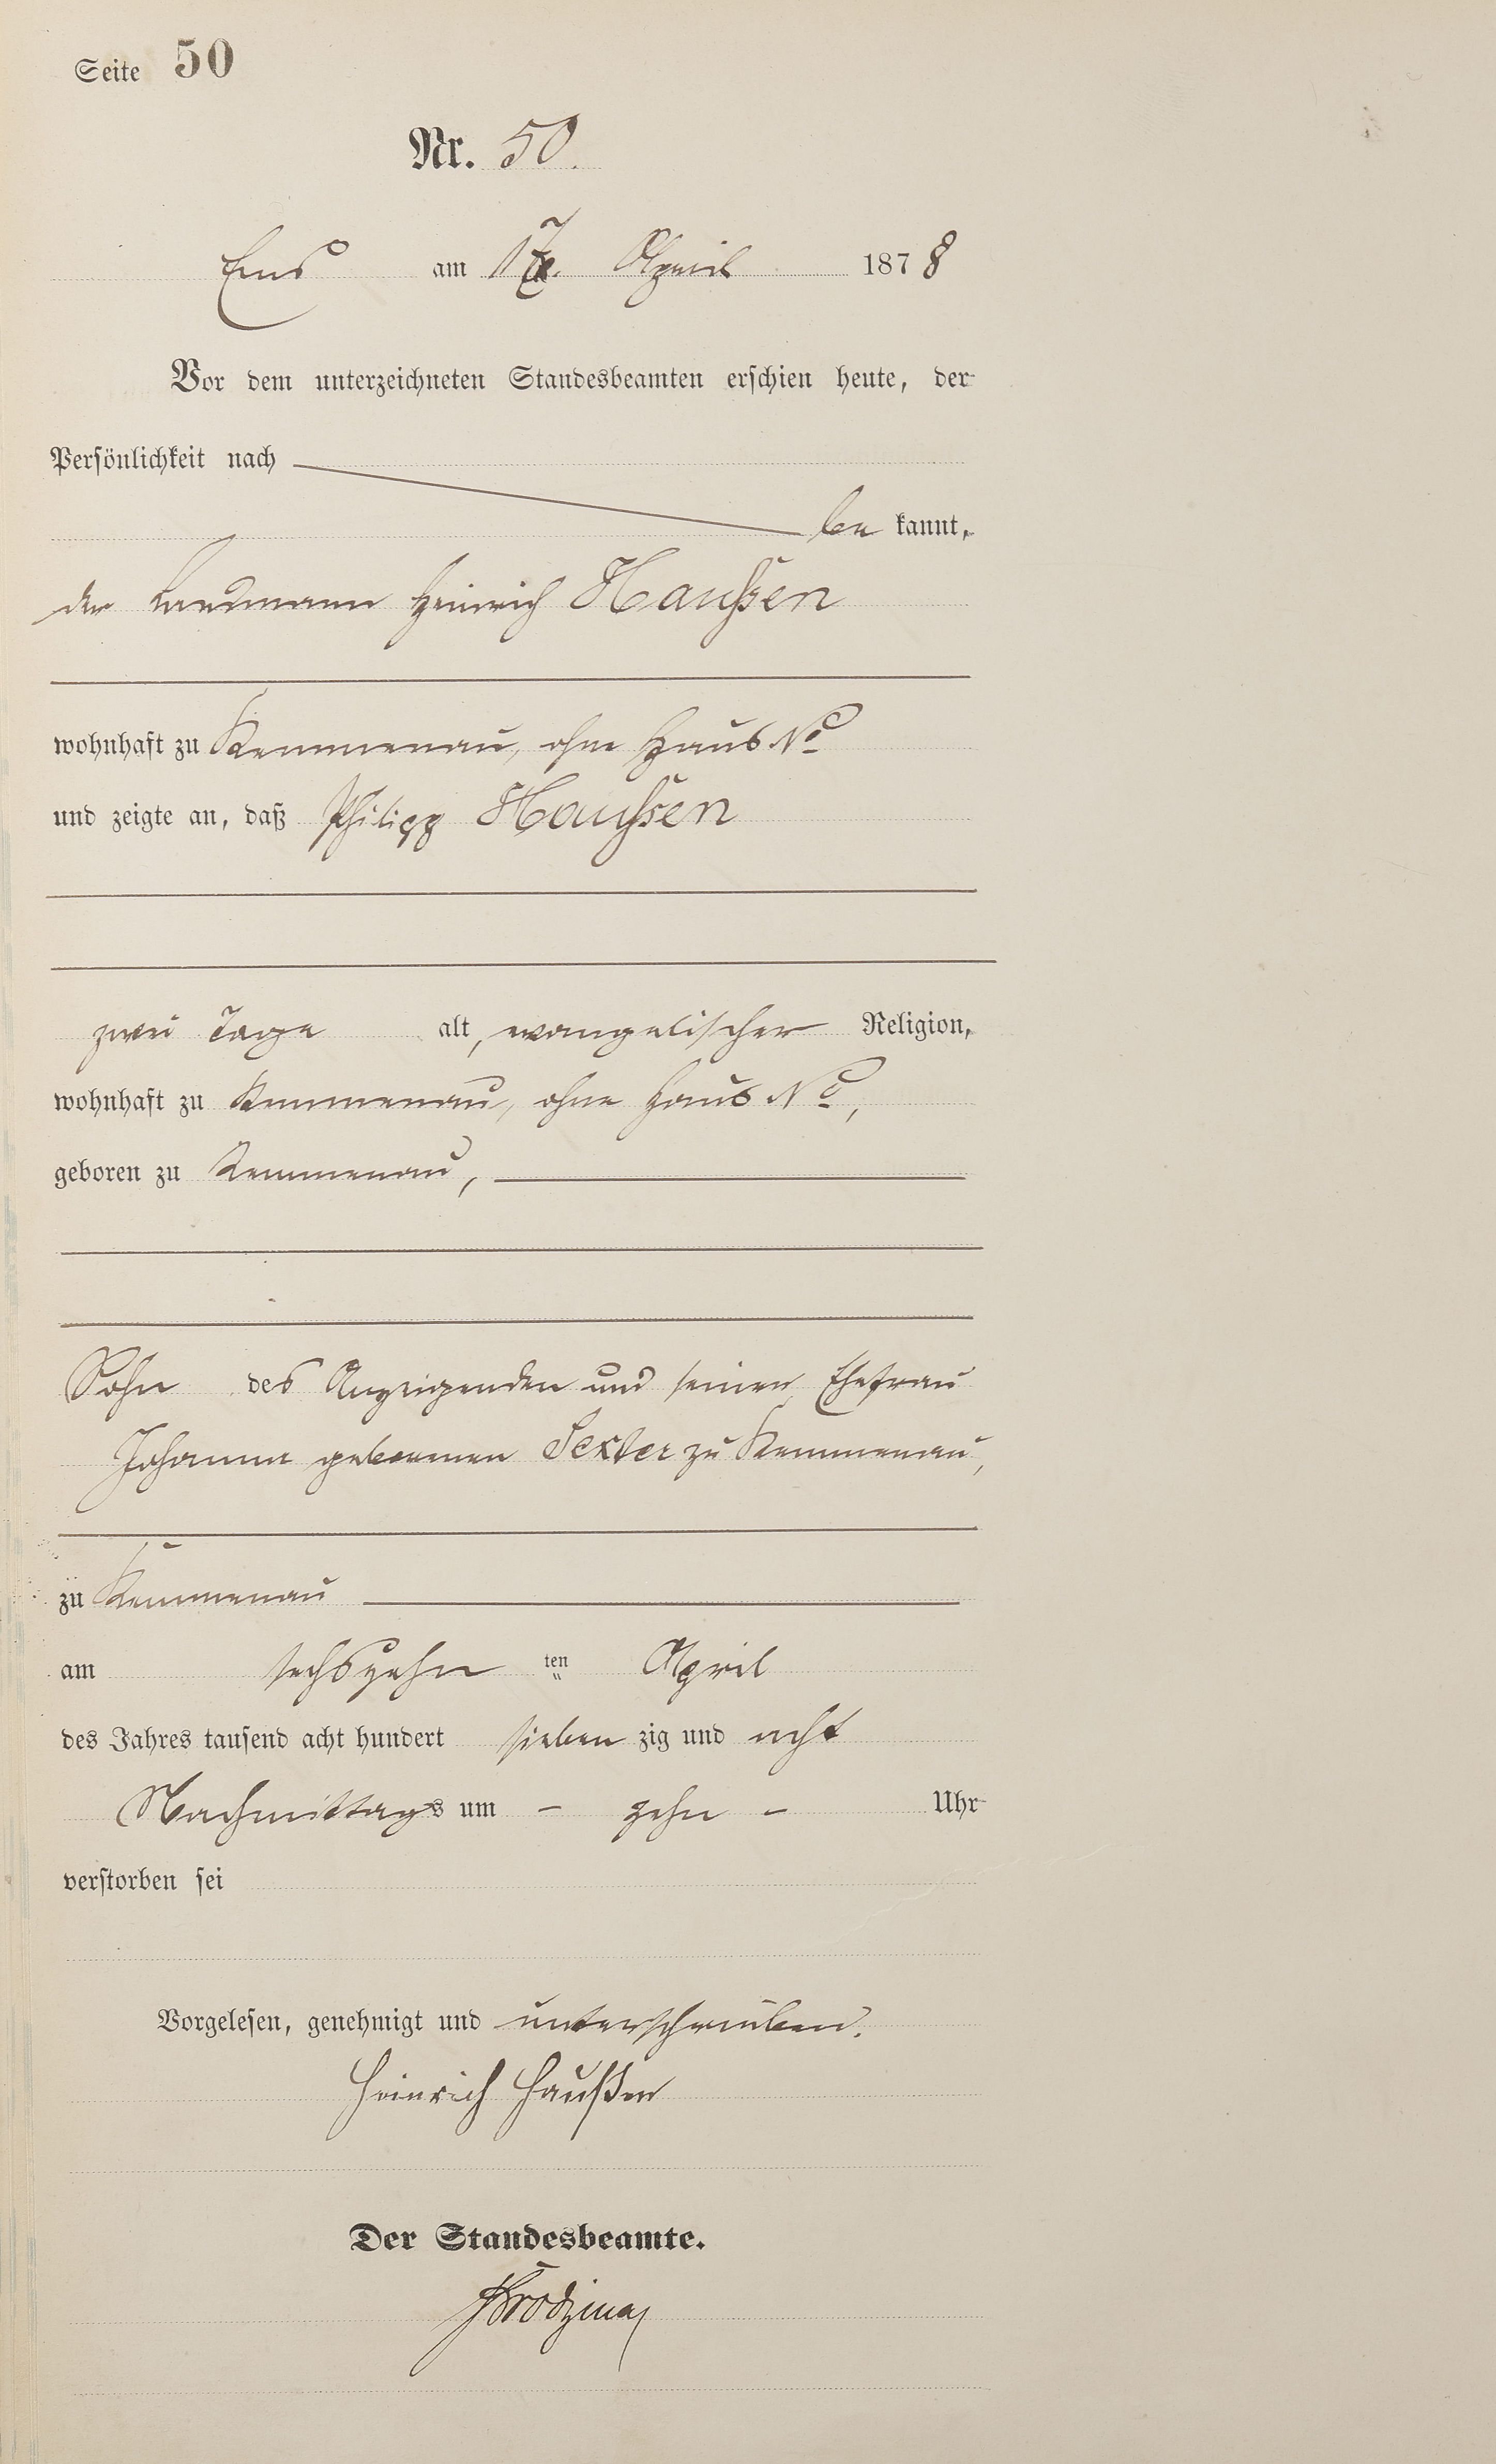 Seite 50
Nr. 50.
Ems am 17. April 1878
Vor dem unterzeichneten Standesbeamten erschien heute, der
Persönlichkeit nach
be kannt,
der Landmann Heinrich Haußen
wohnhaft zu Kemmenau, ohne Haus No
und zeigte an, daß Philipp Haußen
zwei Tage alt, evangelischer Religion,
wohnhaft zu Kemmenau, ohne Haus No,
geboren zu Kemmenau,
Sohn des Anzeigenden und seiner Ehefrau
Johanna geborenen Sexter zu Kemmenau,
zu Kemmenau
am sechszehn ten April
des Jahres tausend acht hundert sieben zig und acht
Nachmittags um - zehn - Uhr
verstorben sei
Vorgelesen, genehmigt und unterschrieben.
Heinrich Haußen
Der Standesbeamte.